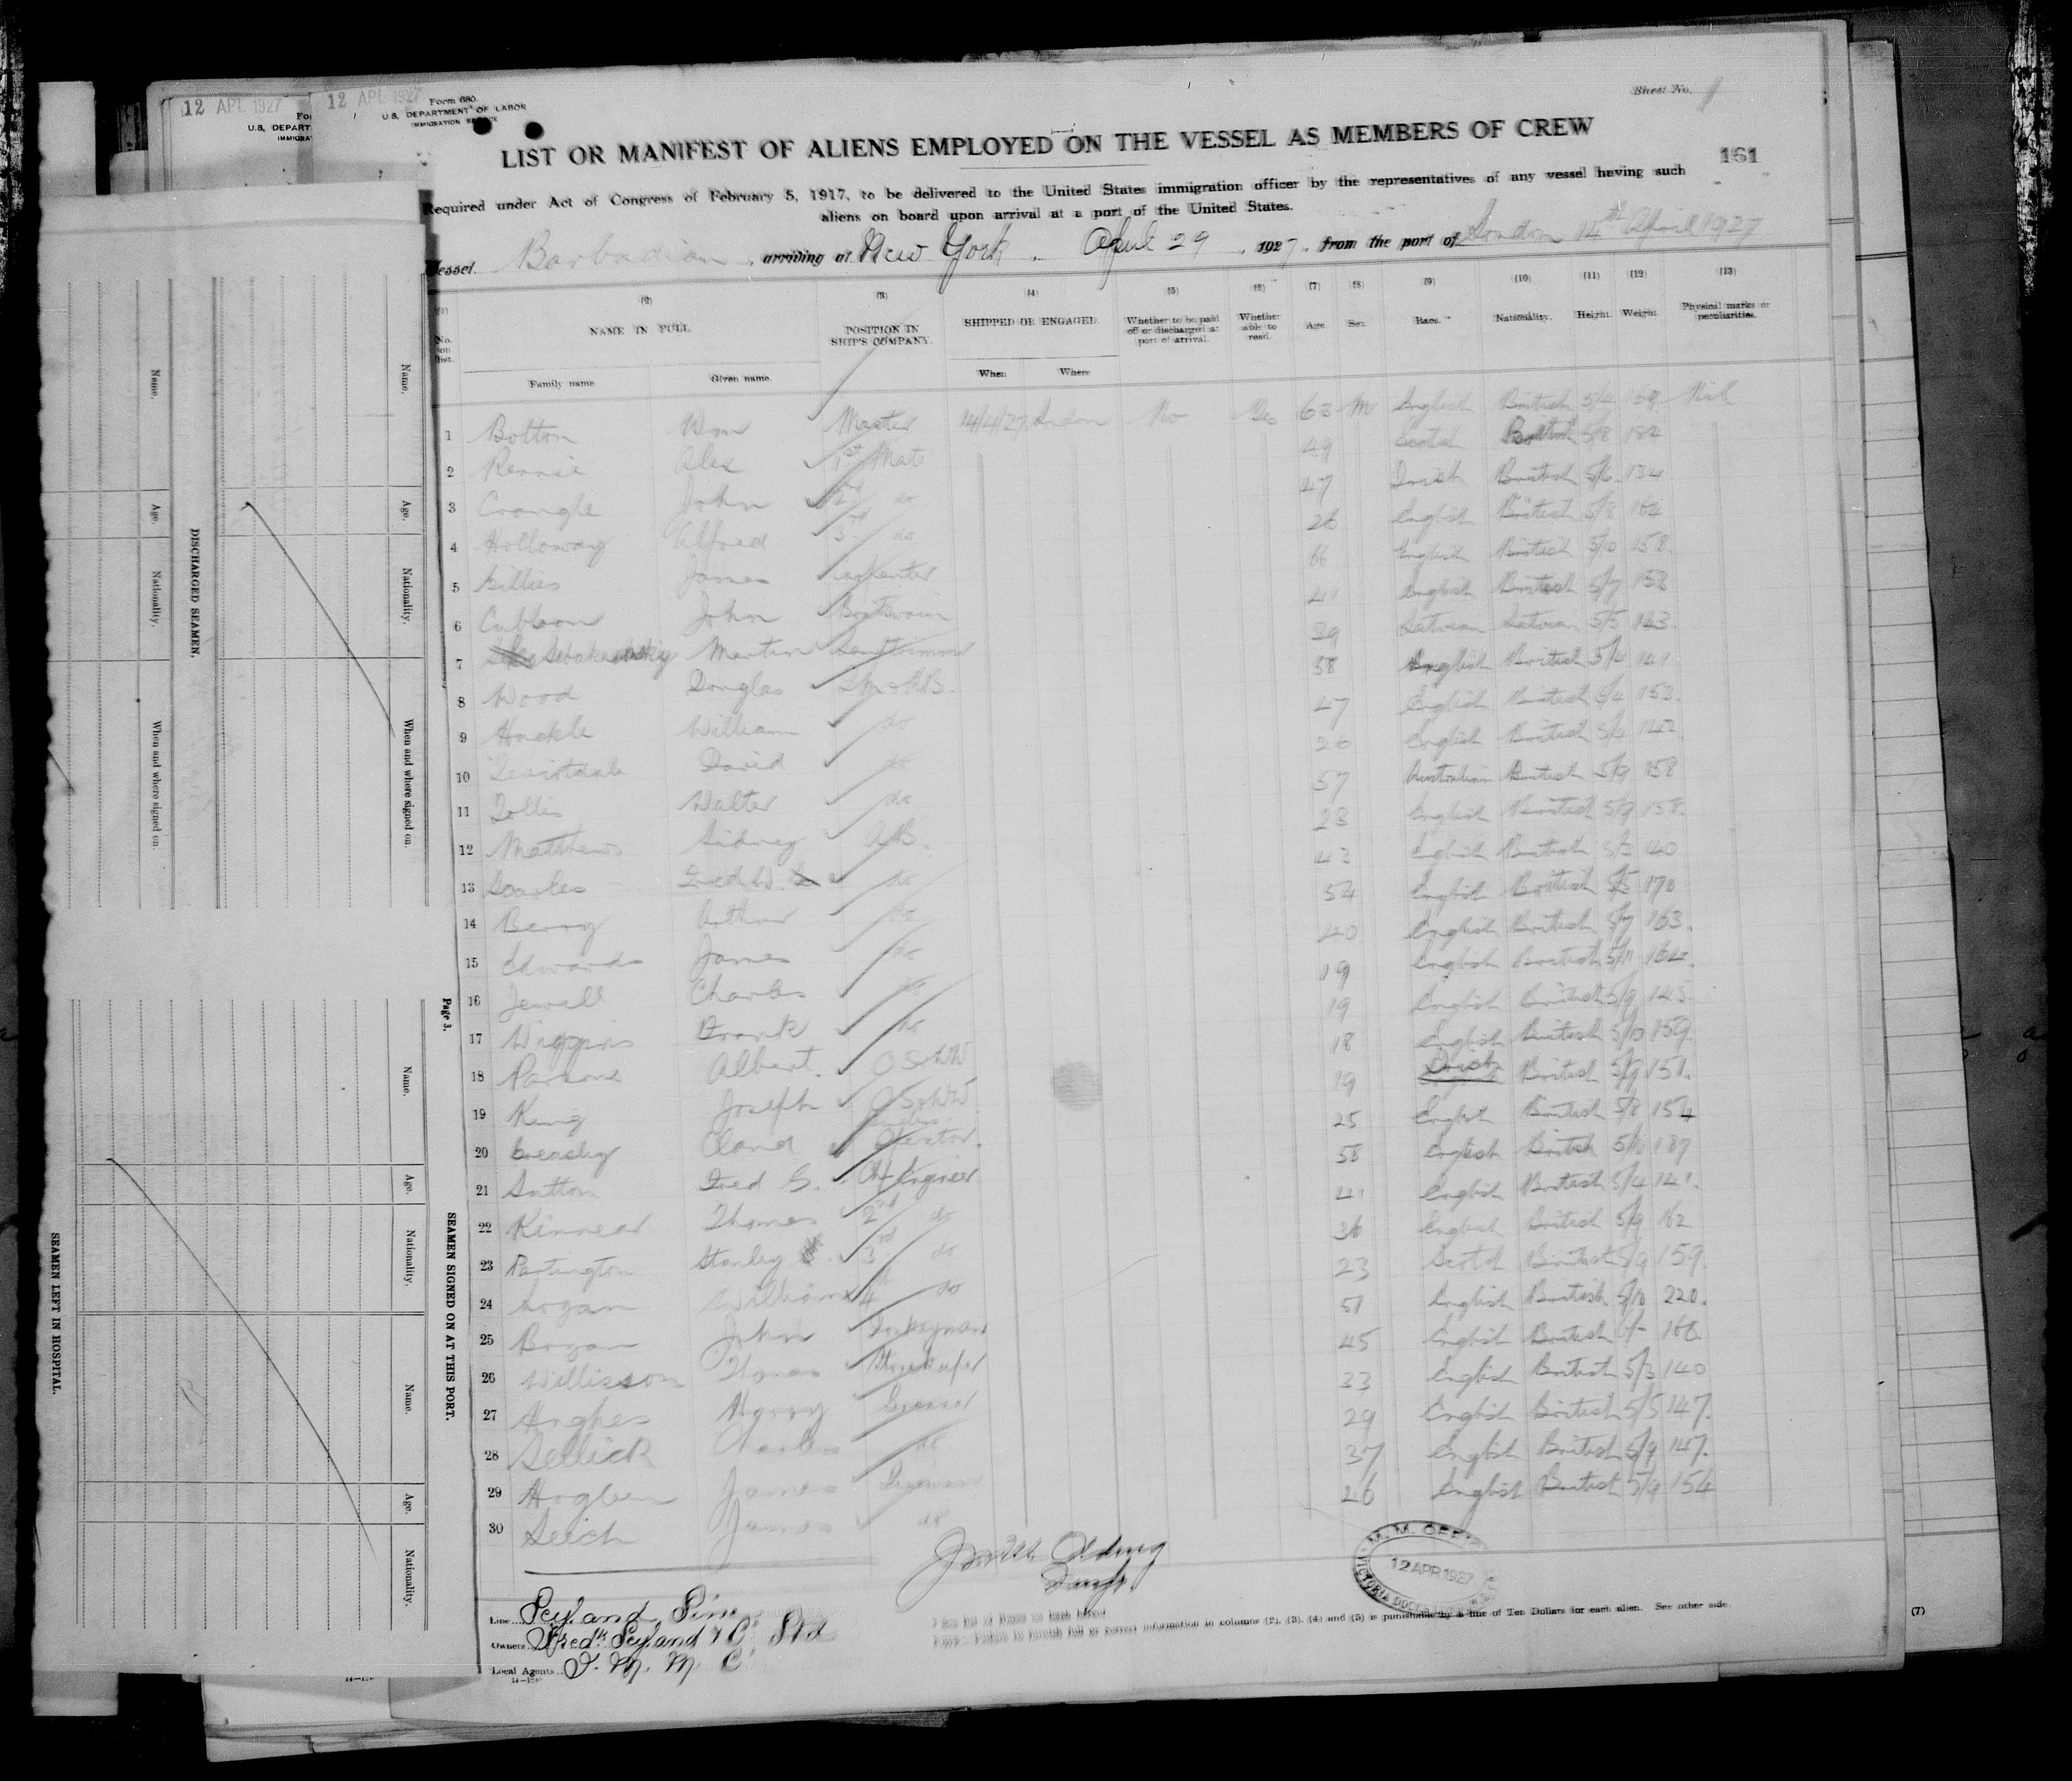 12 APL 1927
12 APL 1927
Form 680.
U.S. DEPARTMENT OF LABOR
IMMIGRATION SERVICE
U.S. DEPART
IMMIGRA
Sheet No. 1
LIST OR MANIFEST OF ALIENS EMPLOYED ON THE VESSEL AS MEMBERS OF CREW
161
Required under Act of Congress of February 5, 1917, to be delivered to the United States immigration officer by the representatives of any vessel having such
aliens on board upon arrival at a port of the United States.
Vessel Barbadian, arriving at New York. April 29, 1927, from the port of London 14th April 1927
(1) (2) (3) (4) (5) (6) (7) (8) (9) (10) (11) (12) (13)
No. on list. NAME IN FULL POSITION IN SHIP'S COMPANY. SHIPPED OR ENGAGED. Whether to be paid off or discharged at port of arrival. Whether able to read. Age. Sex. Race. Nationality. Height. Weight. Physical marks or peculiarities.
Family name. Given name. When Where
1 Bolton Wm Master 14/4/27 London No Yes 63 M English British 5/4 169 Nil
2 Rennie Alex 1st Mate 49 Scotch British 5/8 184
3 Crangle John 2nd do 47 Irish British 5/6 134
4 Holloway Alfred 3rd do 26 English British 5/8 164
5 Gillies James Carpenter 66 English British 5/10 158
6 John Boatswain 41 English British 5/7 152
7 Martin Lamptrimmer 39 Latvian Latvian 5/5 143
8 Wood Douglas 58 English British 5/4 141
9 Huckle William do 47 English British 5/4 153
10 David do 26 English British 5/4 142
11 Walter do 57 Australian British 5/9 158
12 Matthews Sidney A.B. 23 English British 5/9 158
13 Searles Fred W. do 43 English British 140
14 Berry Arthur do 54 English British 5/5 170
15 Edwards James do 40 English British 5/7 163
16 Jewell Charles do 19 English British 5/11 164
17 Wiggins Frank do 19 English British 5/9 143
18 Parsons Albert 18 English British 5/10 159
19 King Joseph 19 Irish British 5/9 151
20 Claud 25 English British 5/8 154
21 Sutton Fred G. Ch Engineer 58 English British 187
22 Kinnear Thomas 2nd do 41 English British 5/4 141
23 Partington Stanley 3rd do 36 English British 5/9 162
24 Logan William 4th do 23 Scotch British 5/9 159
25 Bogan John Donkeyman 51 English British 5/10 220
26 Willisson Storekeeper 45 English British 168
27 Hughes Harry Greaser 33 English British 5/3 140
28 Sellick Charles do 29 English British 5/5 147
29 Hogben James Fireman 37 English British 5/9 147
30 James do 26 English British 5/9 154
M. M. OFFICE
12 APR 1927
VICTORIA DOCKS
Line Leyland Line
Owners Fredk Leyland & Co Ltd
Local Agents I. M. M. Co
information in columns (2), (3), (4) and (5) is punishable by a fine of Ten Dollars for each alien. See other side.
(7)
DISCHARGED SEAMEN.
Name. Age. Nationality. When and where signed on.
Name. Age. Nationality. When and where signed on.
Page 3.
SEAMEN SIGNED ON AT THIS PORT.
Name. Age. Nationality.
Name. Age. Nationality.
SEAMEN LEFT IN HOSPITAL.